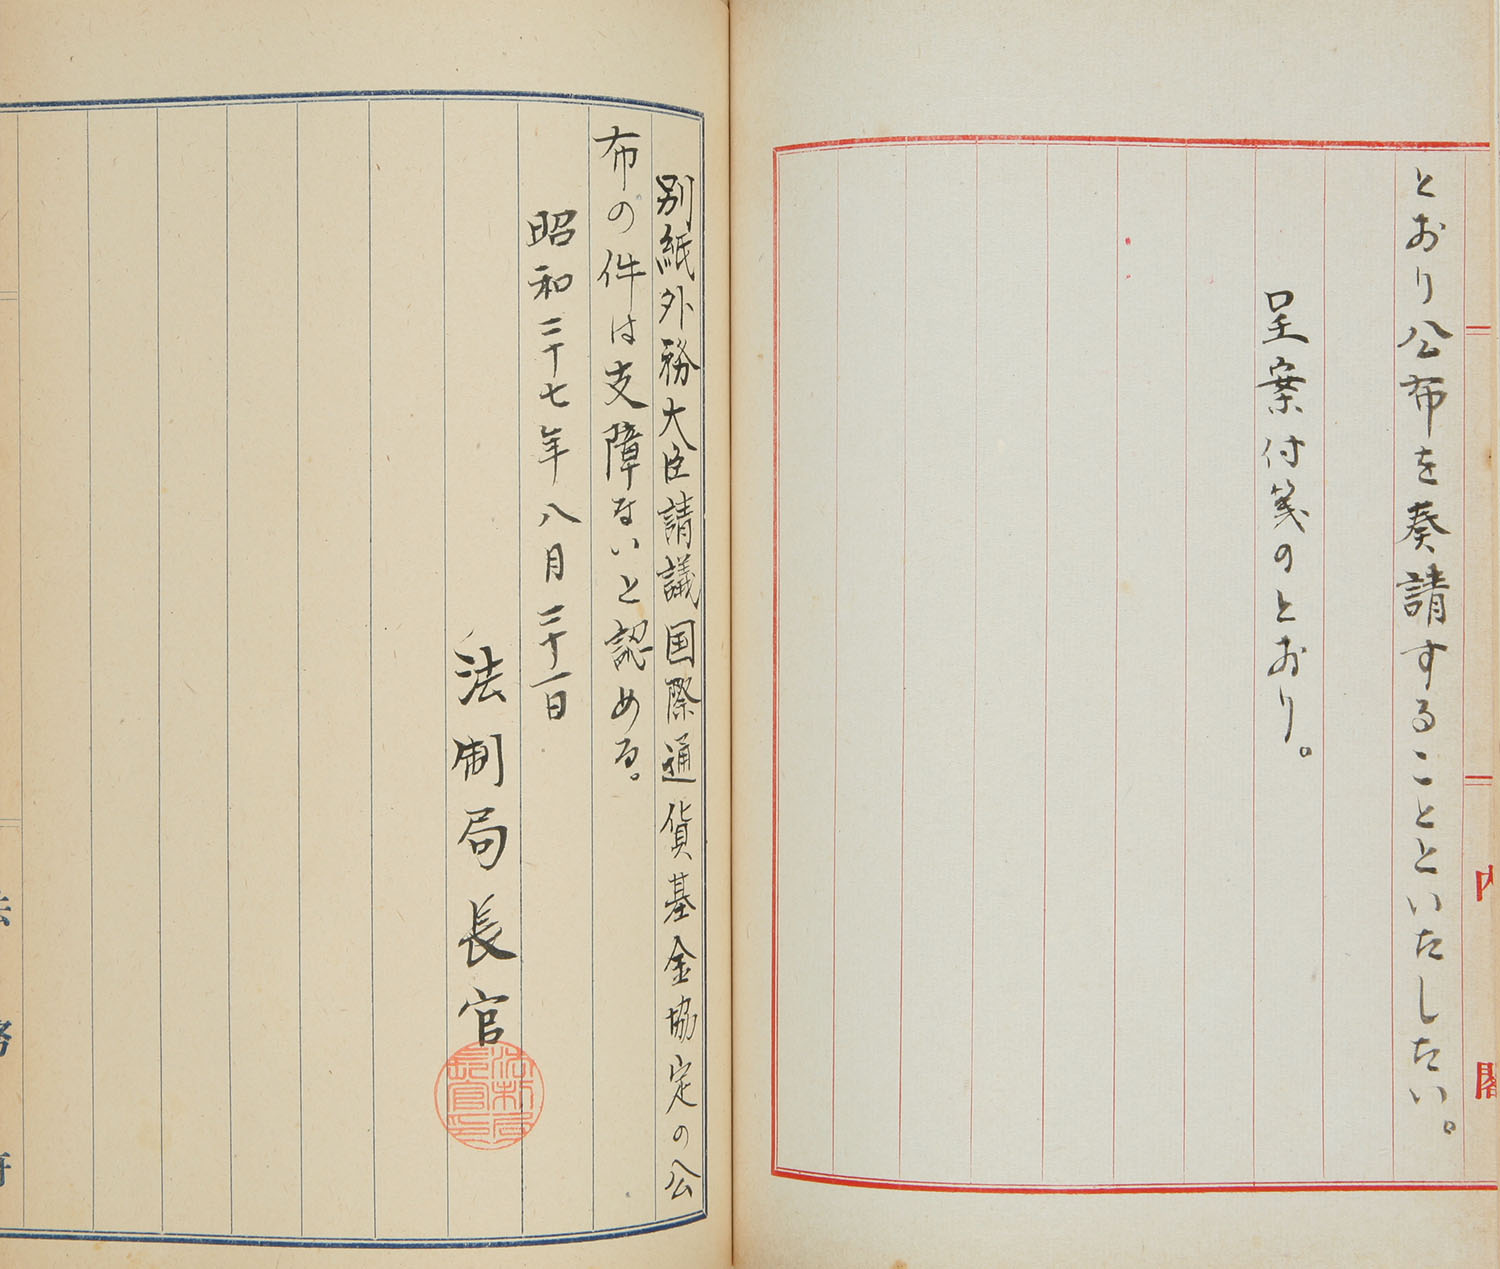 とおり公布を奏請することといたしたい。
呈案付箋のとおり。
内閣
別紙外務大臣請議国際通貨基金協定の公
布の件は支障ないと認める。
昭和二十七年八月二十一日
法制局長官
法制局長官印